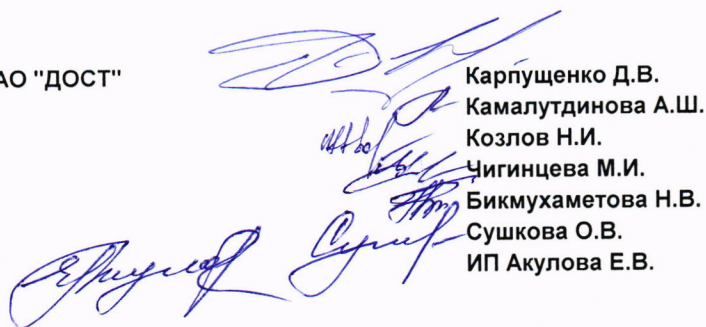 АО "ДОСТ"
Карпущенко Д.В.
Камалутдинова А.Ш.
Козлов Н.И.
Чигинцева М.И.
Бикмухаметова Н.В.
Сушкова О.В.
ИП Акулова Е.В.